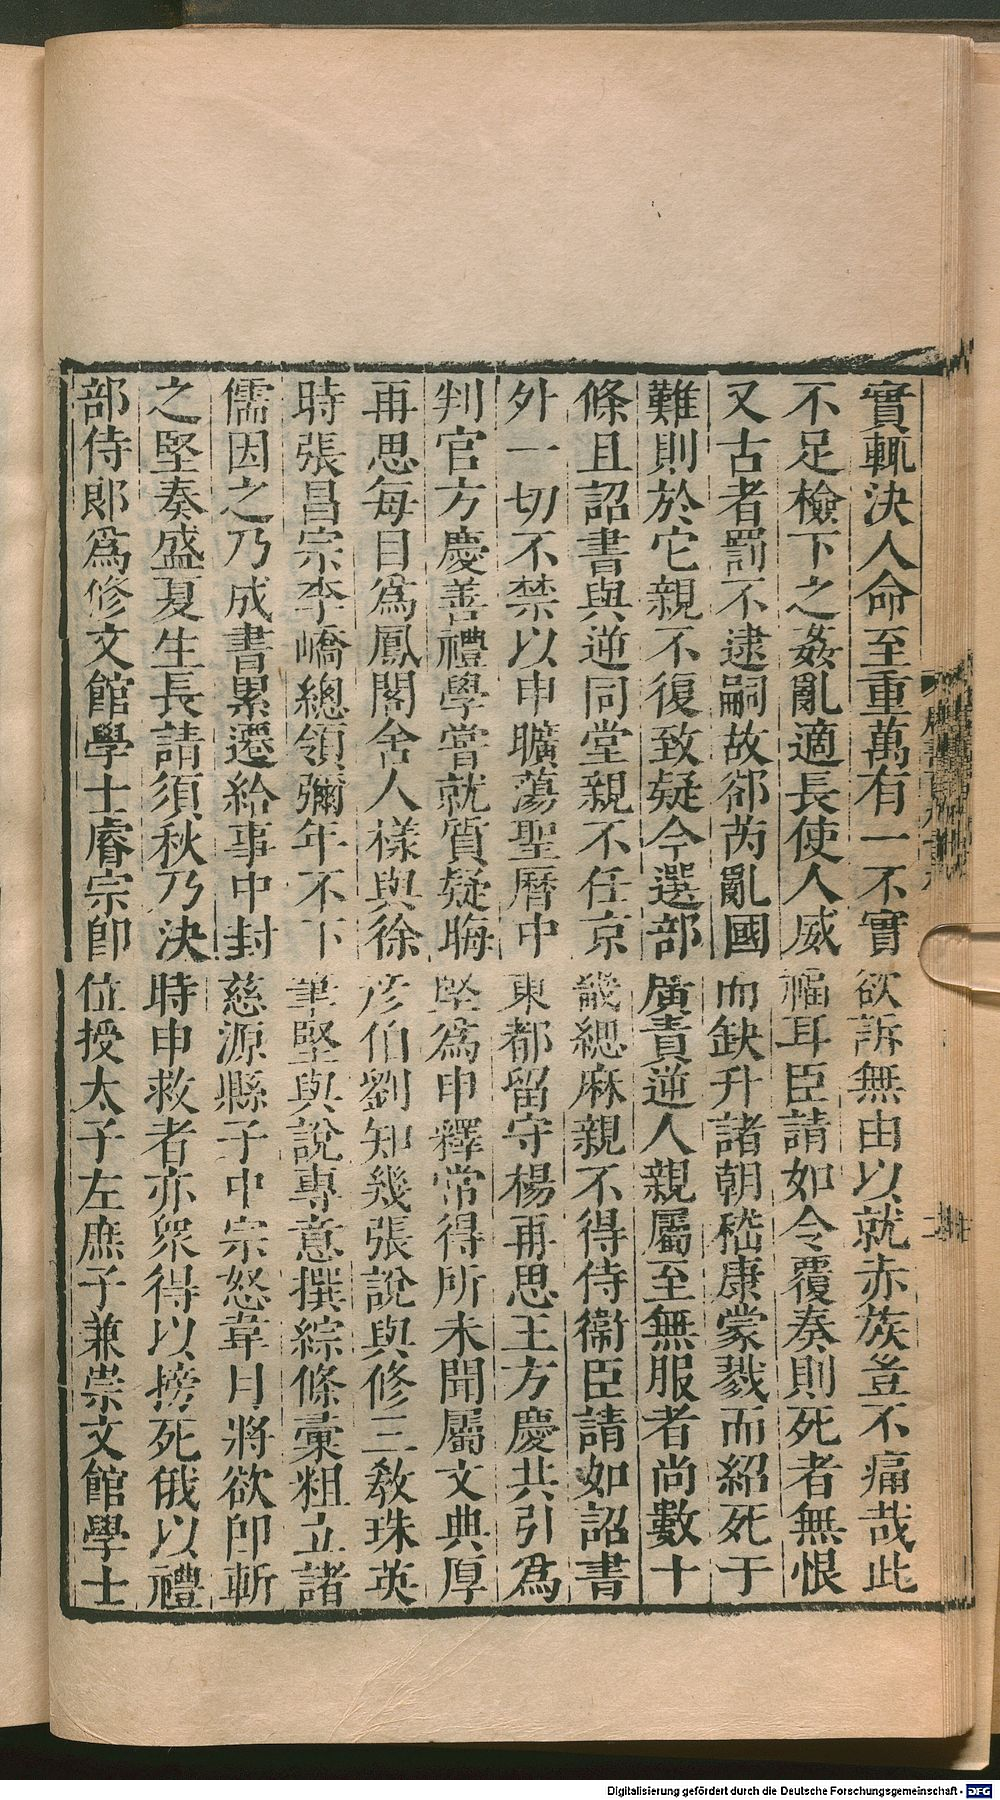 實輒決人命至重萬有一不實欲訴無由以就赤族豈不痛哉此
不足檢下之姦亂適長使人威福耳臣請如令覆奏則死者無恨
又古者罰不逮嗣故郤芮亂國而缺升諸朝嵇康蒙戮而紹死于
難則於它親不復致疑今選部廣責逆人親屬至無服者尚數十
條且詔書與逆同堂親不任京畿緦麻親不得侍衞臣請如詔書
外一切不禁以申曠蕩聖曆中東都留守楊再思王方慶共引爲
判官方慶善禮學嘗就質疑晦堅爲申釋常得所未聞屬文典厚
再思每目爲鳳閣舍人樣與徐彥伯劉知幾張說與修三敎珠英
時張昌宗李嶠總領彌年不下筆堅與說專意撰綜條彙粗立諸
儒因之乃成書累遷給事中封慈源縣子中宗怒韋月將欲卽斬
之堅奏盛夏生長請須秋乃決時申救者亦衆得以搒死俄以禮
部侍郞爲修文館學士睿宗卽位授太子左庶子兼崇文館學士
Digitalisierung gefördert durch die Deutsche Forschungsgemeinschaft - DFG